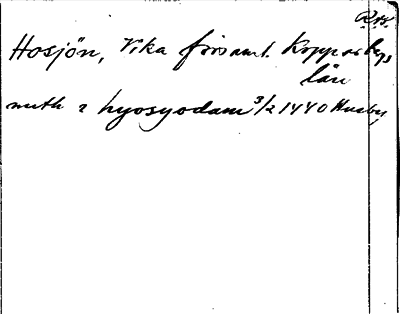 Hosjön, Vika församl. Kopparbergs
län
muth i hyosyodam 3/2 1440 Husby